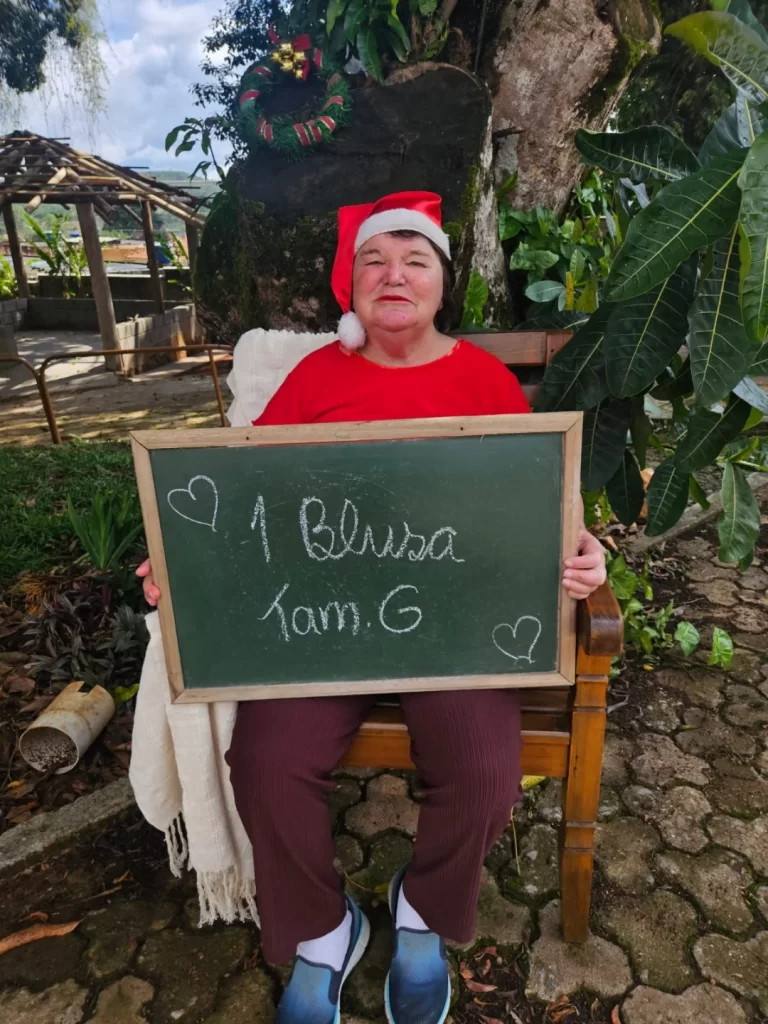 1 Blusa
Tam. G